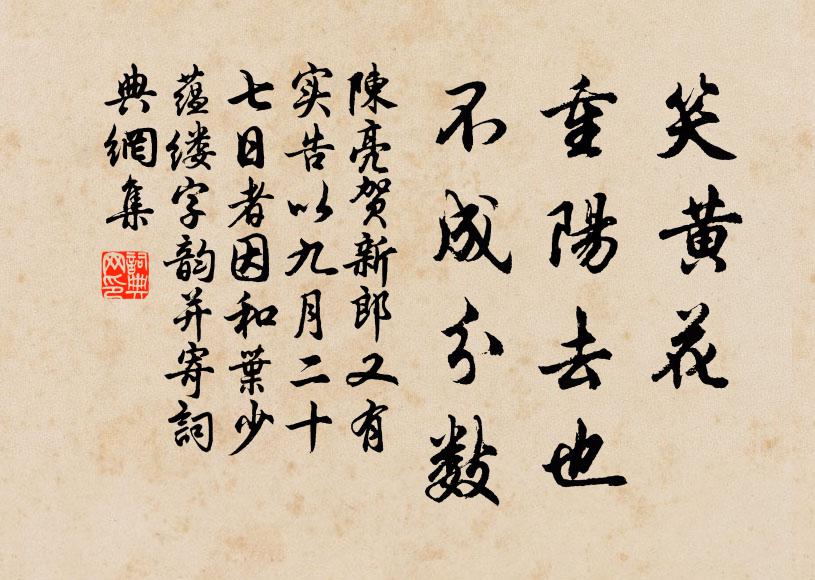 笑黄花
重陽去也
不成分数
陳亮贺新郎又有
实告以九月二十
七日者因和葉少
蕴缕字韵并寄詞
典網集
詞典网印